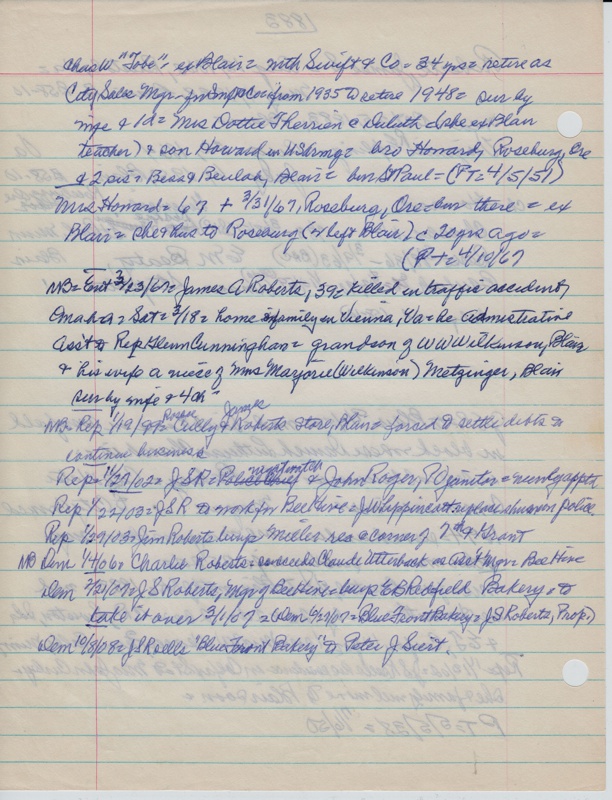 Chas W "Tobe", ex Blair = with Swift & Co = 34 yrs = retire as
City Sales Mgr = from 1935 to retire 1948 = sur by
wife & 1d = Mrs Dottie Therrien c Duluth (she ex Blair
teacher) & son Howard in US Army = bro Howard, Roseburg, Ore
& 2 sis = Bess & Beulah, Blair = bur St Paul = (PT = 4/5/51)
Mrs Howard = 67 + 3/31/67, Roseburg, Ore = bur there = ex
Blair = she & hus to Roseburg (or left Blair) c 20 yrs ago =
(PT = 4/10/67
NB = Ent 3/23/67 = James A Roberts, 39 = killed in traffic accident,
Omaha = Sat = 3/18 = home & family in Vienna, Va = he administrative
Ass't to Rep Glenn Cunningham = grandson of W W Wilkinson, Blair
& his wife a niece of Mrs Marjorie (Wilkinson) Metzinger, Blair
sur by wife & 4ch
NB Rep 1/19/ = Culley & Roberts store, Blair = forced to settle debts &
James
continue business
nightwatch
Rep = 1/27/02 = J S R = Police Chief & John Roger, PO janitor = newly appt
Rep 1/22/03 = J S R to work for Bee Hive = J Whippincott replace him on police
Rep 1/29/03 = Jim Roberts buys Miller res @ corner of 7th & Grant
NB Dem 1/4/06 = Charlie Roberts = succeeds Claude Utterback as Ass't Mgr = Bee Hive
Dem 2/21/07 = J S Roberts, Mgr of Bee Hive = buys E B Redfield Bakery = to
take it over 3/1/07 = (Dem 6/27/07 = Blue Front Bakery = J S Roberts, Prop.)
Dem 10/8/08 = J S R sells "Blue Front Bakery" to Peter J Siert,